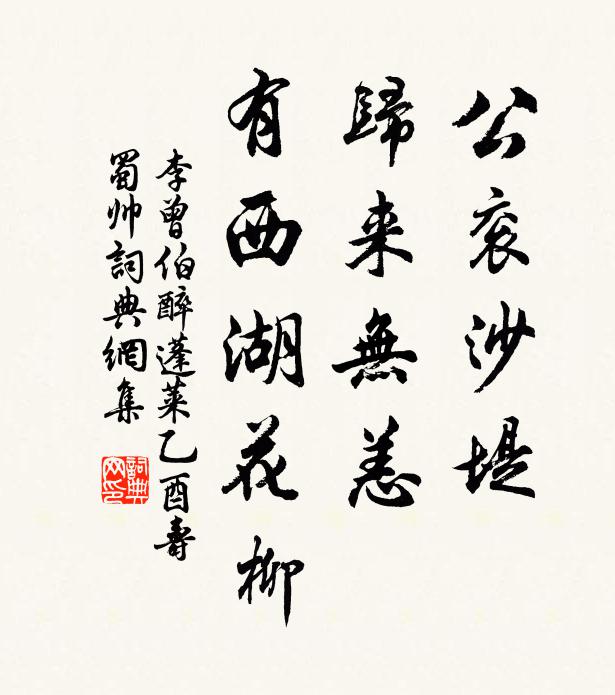 公衮沙堤
歸来無恙
有西湖花柳
李曾伯醉蓬萊乙酉壽
蜀帅詞典網集
詞典
网印